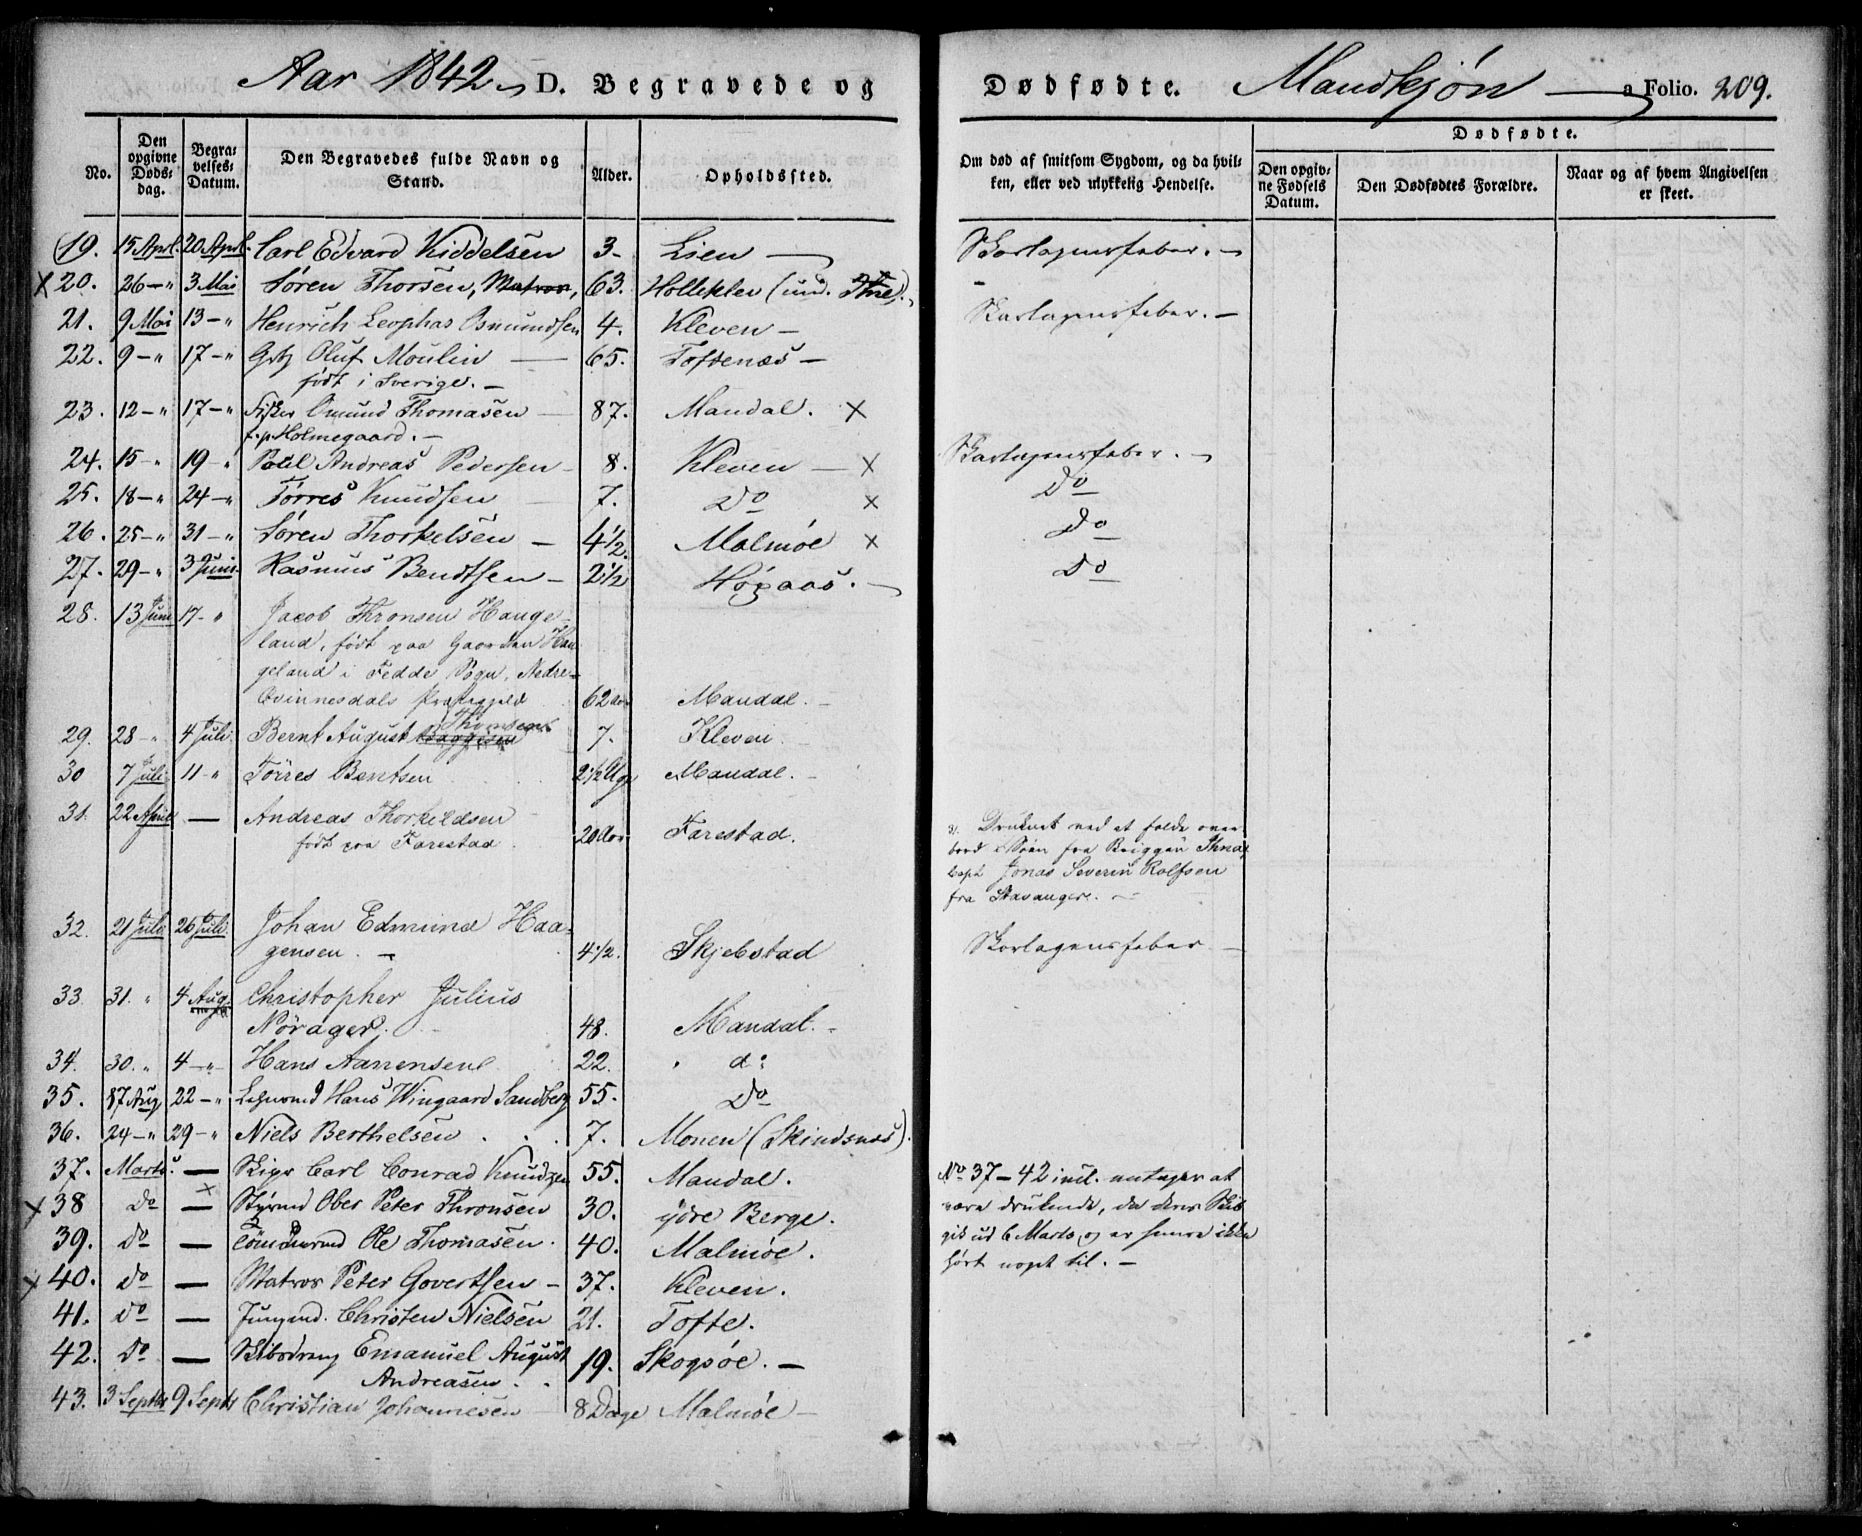 Aar 1842 D. Begravede og Dødfødte. Mandkjøn a Folio. 209.
No. Den opgivne Døds-dag. Begra-velses-Datum. Den Begravedes fulde Navn og Stand. Alder. Opholdssted. Om død af smitsom Sygdom, og da hvil-ken, eller ved ulykkelig Hendelse. Dødfødte. Den opgiv-ne Fødsels Datum. Den Dødfødtes Forældre. Naar og af hvem Angivelsen er skeet.
19. 15 Apri. 20 Apri. Carl Edvard Kiddelsen 3 - Lien — Skarlagensfeber. -
x 20. 26 - " 3 Mai Søren Thorsen, Matros, 63. Holleklev (und. ).
21. 9 Mai 13 - " Henrich Leophas Osmundsen 4. Kleven - Skarlagensfeber. -
22. 9 - " 17 - " Oluf Moulin — 65. Toftenæs -
født i Sverige. -
23. 12 - " 17 - " Fisker Omund Thomasen 87. Mandal. x
f. p. Holmegaard. -
24. 15 - " 19 - " Poul Andreas Pedersen - 8. Kleven - x Skarlagensfeber. -
25. 18 - " 24 - " Tørres Knudsen 7. Do x Do
26. 25 - " 31 - " Søren Thorkelsen - 4 1/2. Malmøe x Do
27. 29 - " 3 Juni Rasmus Bendtsen - 2 1/2 Høgaas. - Do
28. 13 Juni 17 - " Jacob Thronsen Hauge-
land, født paa Gaarden Hau-
geland i Fedde Sogn, Nedre-
Qvinnesdals Præstegjeld 62 Aar Mandal. -
29. 28 - " 4 Juli Bernt August Thomsen 7. Kleven
30 7 Juli 11 - " Törres Bentsen 2 1/2 Uge Mandal. -
31. 22 April — Andreas Thorkildsen
født paa Farestad 20 Aar Farestad.
31. Druknet ved at falde over
bord i Søen fra Briggen
Capt Jonas Severin Rolfsen
fra Stavanger. -
32. 21 Juli 26 Juli Johan Edmund Haa-
gensen. - 4 1/2. Skjebstad Skarlagensfeber -
33. 31. " 4 Aug. Christopher Julius
Nörager. 48. Mandal. -
34. 30. " 4 - " Hans Aanensen 22. d:
35. 17 Aug 22 - " Hans Wingaard Sandberg 55. Do
36. 24 - " 29 - " Niels Berthelsen . . . 7. Monen (Skindsnæs).
37. Marts. — Skipr Carl Conrad Knudzen 55. Mandal. No 37 - 42 incl. antages at
x 38 Do — x Styrmd Ober Peter Thronsen 30. ydre Berge. være druknede, da deres Skib
39. Do — Tömmermd Ole Thomasen. 40. Malmøe. gik ud 6 Marts, og er senere ikke
x 40. Do — Matros Peter Govertsen - 37. Kleven. hørt noget til. -
41. Do — Jungmd. Christen Nielsen 21. Tofte.
42. Do — Skibsdreng Emanuel August
Andreasen. . 19. Skogsøe. -
43. 3 Septbr 9 Septbr Christian Johannesen 8 Dage Malmøe -